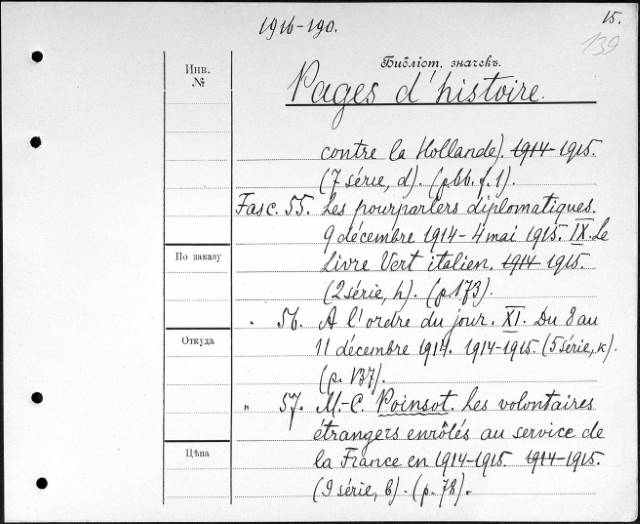 1916-190.
15.
139
Библіот. значекъ.
Инв.
№
Pages d'histoire.
contre la Hollande). 1914-1915.
(7 série, d). (p. bb. f. 1).
Fasc. 55. Les pourparlers diplomatiques.
9 décembre 1914-4 mai 1915. IX. Le
Livre Vert italien. 1914-1915.
(2 série, h). (p. 173).
По заказу
" 56. A l'ordre du jour. XI. Du 8 au
11 décembre 1914. 1914-1915. (5 série, k).
(p. 137).
Откуда
" 57. M.-C. Poinsot. Les volontaires
étrangers enrôlés au service de
la France en 1914-1915. 1914-1915.
(9 série, b). (p. 78).
Цѣна